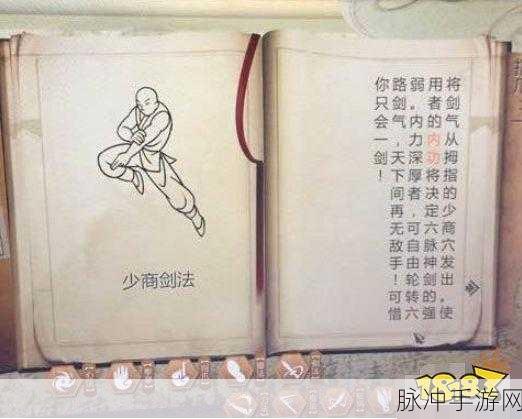 将剑气从拇指的少商穴发出。使
用者的内功将决定六脉神剑的强
弱。内力深厚者，可自由轮转六
路剑气，天下间再无敌手！可借
你只会一剑！
少商剑法
脉冲手游网